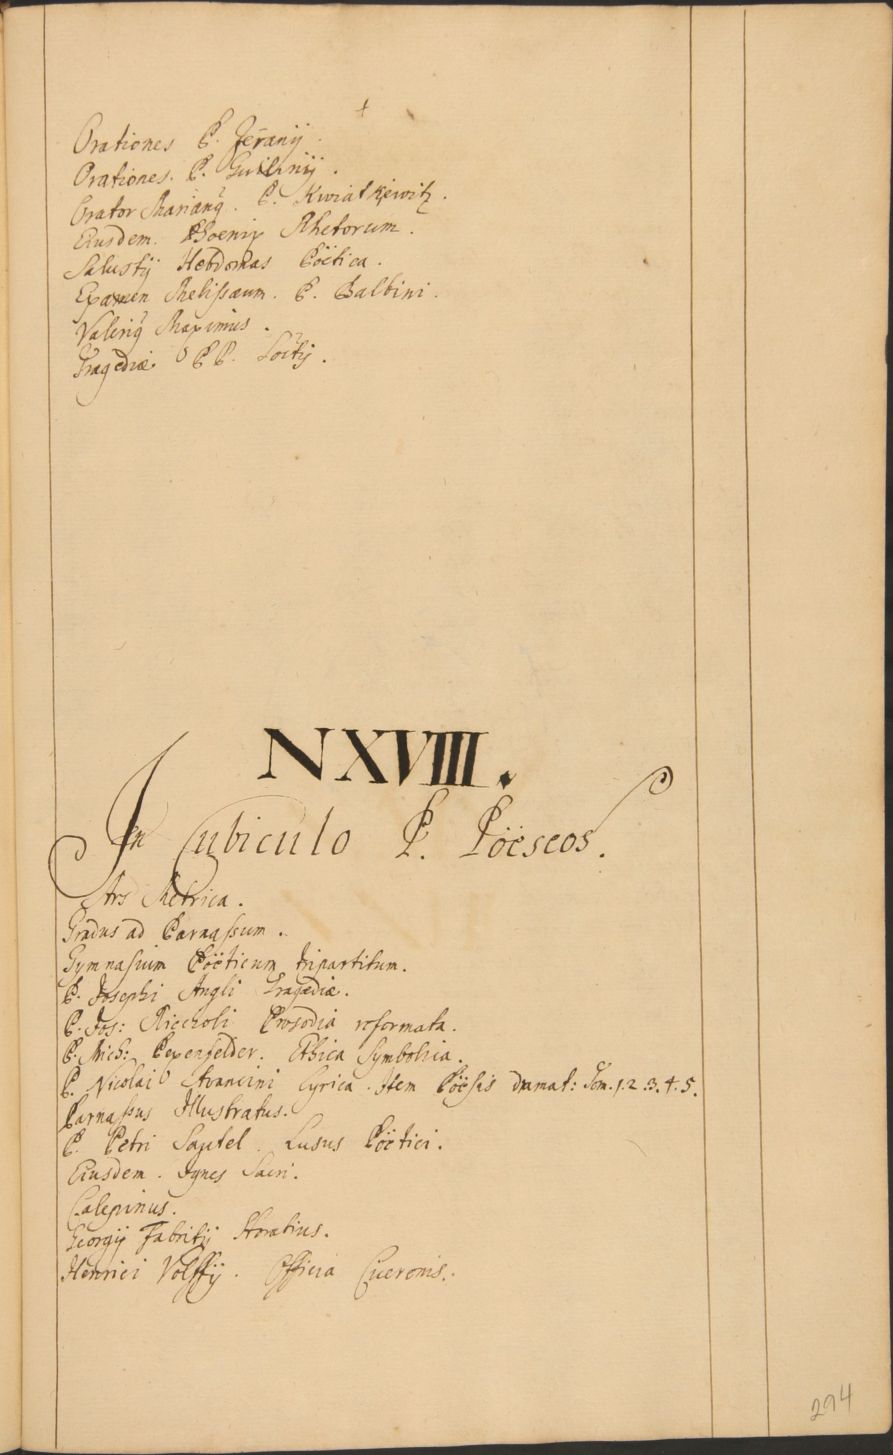 Orationes P. Jeranij.
Orationes. P. Guilinij.
Orator Marianq. P. Kwiatkiewitz.
Eiusdem. Phoenix Rhetorum.
Salustij Hebdomas Poëtica.
Examen Melissæum. P. Balbini.
Valeriq Maximus.
Tragediæ PP. Soctij.
N XVIII.
In Cubiculo P. Poëseos.
Ars Metrica.
Gradus ad Parnassum.
Gymnasium Poëticum tripartitum.
P. Josephi Angli Tragædiæ.
P. Jos: Riccioli Prosodia reformata.
P. Mich: Pexenfelder. Ethica Symbolica.
P. Nicolai Avancini Lyrica. Item Poësis dramat: Tom. 1. 2. 3. 4. 5.
Parnassus Illustratus.
P. Petri Lusus Poëtici.
Eiusdem. Ignes Sacri.
Calepinus.
Georgij Fabritij Horatius.
Henrici Volffij. Officia Ciceronis.
294